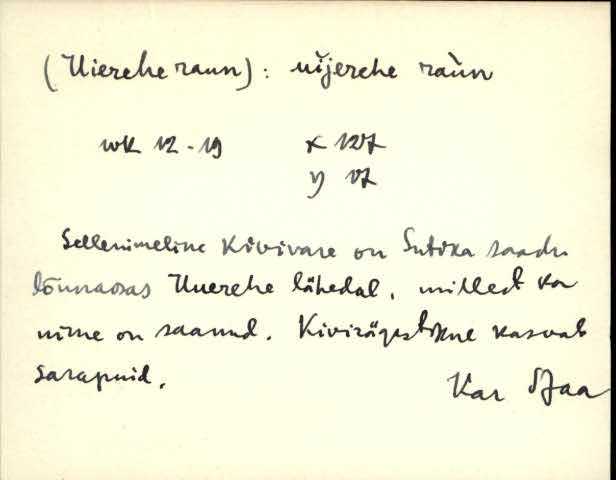 (Uierehe raun): uijerehe raùn
wk 12-19 x 127
y 17
Sellenimeline kivivare on Sutika saadu
lõunaosas Uuerehe lähedal, millest ka
nime on saanud. Kivirägastikul kasvab
sarapuid.
Kar Jaa